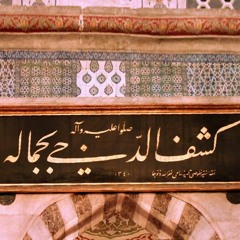 صلوا عليه وآله
كشف الدجى بجماله
١٣٤٠